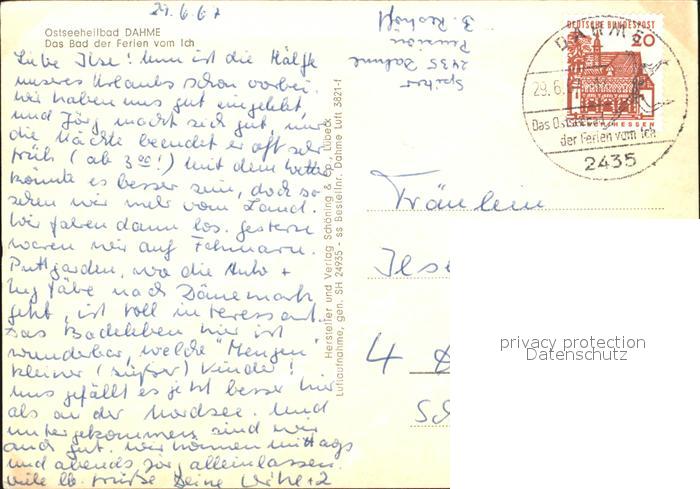 29.6.67
Ostseeheilbad DAHME
Das Bad der Ferien vom Ich
Liebe Ilse! Nun ist die Hälfte
unseres Urlaubs schon vorbei.
Wir haben uns gut eingelebt,
und Jörg macht sich gut, nur
die Nächte beendet er oft sehr
früh (ab 3 00!) mit dem Wetter
könnte es besser sein, doch so
sehen wir mehr vom Land.
Wir fahren dann los. gestern
waren wir auf Fehmarn.
Puttgarden, wo die Auto +
Zugfähre nach Dänemark
geht, ist toll interessant.
Das Badeleben hier ist
wunderbar, welche "Mengen"
kleiner (süßer) Kinder!
uns gefällt es jetzt besser hier
als an der Nordsee. Und
untergekommen sind wir
auch gut. Wir können mittags
und abends Jörg alleinlassen.
viele lb. Grüße Deine
Hersteller und Verlag Schöning & Co., Lübeck
Luftaufnahme, gen. SH 24935 - ss Bestellnr. Dahme Luft 3821-1
Pension
2435 Dahme
DEUTSCHE BUNDESPOST
20
HESSEN
DAHME
29.6.
Das Ostseebad
der Ferien vom Ich
2435
Fräulein
Ilse
4
privacy protection
Datenschutz